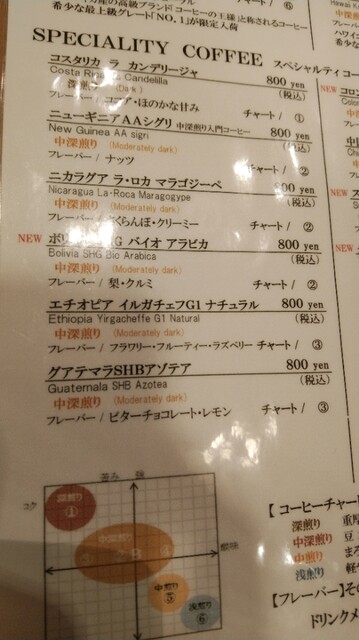 の高級ブランド「コーヒーの王様」と称されるコーヒー
希少な最上級グレード「NO.1」が限定入荷
チャート/ ⑥
SPECIALITY COFFEE スペシャルティコー
コスタリカ ラ カンデリージャ 800 yen
Costa Candelilla (税込)
深煎り (Dark)
フレーバー/ ココア・ほのかな甘み チャート/ ①
ニューギニアAAシグリ 中深煎り入門コーヒー 800 yen
New Guinea AA sigri (税込)
中深煎り (Moderately dark)
フレーバー/ ナッツ チャート/ ②
ニカラグア ラ・ロカ マラゴジーペ 800 yen
Nicaragua La・Roca Maragogype (税込)
中深煎り (Moderately dark)
フレーバー/ さくらんぼ・クリーミー チャート/ ②
NEW G バイオ アラビカ 800 yen
Bolivia SHG Bio Arabica (税込)
中深煎り (Moderately dark)
フレーバー/ 梨・クルミ チャート/ ②
エチオピア イルガチェフG1 ナチュラル 800 yen
Ethiopia Yirgacheffe G1 Natural (税込)
中深煎り (Moderately dark)
フレーバー/ フラワリー・フルーティー・ラズベリー チャート/ ③
グアテマラSHBアゾテア 800 yen
Guatemala SHB Azotea (税込)
中深煎り (Moderately dark)
フレーバー/ ビターチョコレート・レモン チャート/ ③
NEW
NEW
苦み 強
コク
深煎り
①
中深煎り
② ③ ④
酸味
中煎り
⑤
浅煎り
⑥
【コーヒーチャー
深煎り 重厚
中深煎り 豆
中煎り まろ
浅煎り 軽
【フレーバー】その
ドリンクメ